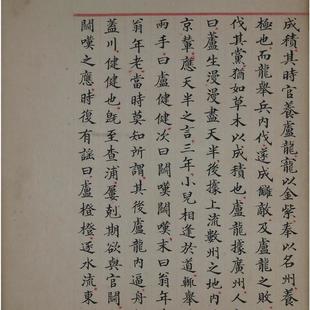 成積其時官養盧龍寵以金紫奉以名州養
極也而龍舉兵內伐遂成讎敵及盧龍之敗
伐其黨猶如草木以成積也盧龍據廣州人
曰蘆生漫漫竟天半後據上流數州之地內
京輦應天半之言三年小兒相逢於道輒舉
兩手曰盧健健次曰鬬嘆末曰翁年
翁年老當時莫知所謂其後盧龍內逼舟
蓋川健健也旣至查浦屢剋期欲與官鬬
鬬嘆之應時復有謠曰盧橙橙逐水流東